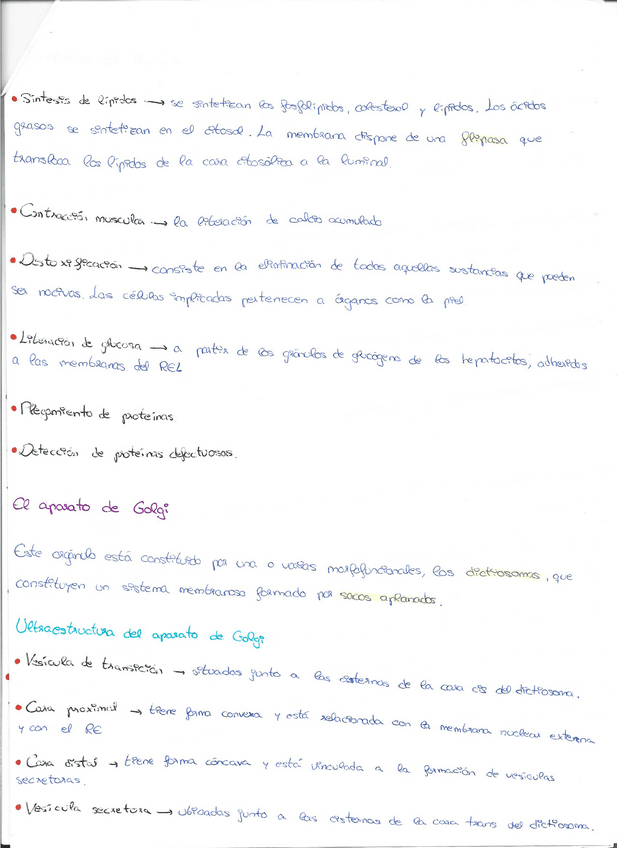 • Síntesis de lípidos → se sintetizan los fosfolípidos, colesterol y lípidos. Los ácidos
grasos se sintetizan en el citosol. La membrana dispone de una flipasa que
transloca los lípidos de la cara citosólica a la luminal.
• Contracción muscular → la liberación de calcio acumulado
• Destoxificación → consiste en la eliminación de todas aquellas sustancias que pueden
ser nocivas. Las células implicadas pertenecen a órganos como la piel.
• Liberación de glucosa → a partir de los gránulos de glucógeno de los hepatocitos, adheridos
a las membranas del REL
• Plegamiento de proteínas
• Detección de proteínas defectuosas.
El aparato de Golgi
Este orgánulo está constituido por una o varias morfofuncionales, los dictiosomas, que
constituyen un sistema membranoso formado por sacos aplanados.
Ultraestructura del aparato de Golgi
• Vesícula de transición → situados junto a las cisternas de la cara cis del dictiosoma.
• Cara proximal → tiene forma convexa y está relacionada con la membrana nuclear externa
y con el RE
• Cara distal → tiene forma cóncava y está vinculada a la formación de vesículas
secretoras.
• Vesícula secretora → ubicadas junto a las cisternas de la cara trans del dictiosoma.